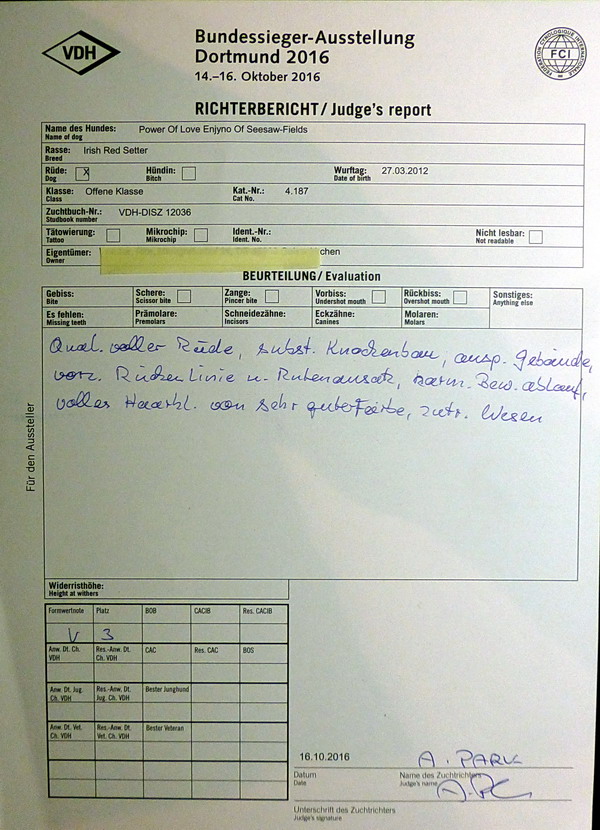 VDH
Bundessieger-Ausstellung
Dortmund 2016
14.–16. Oktober 2016
FEDERATION CYNOLOGIQUE INTERNATIONALE
FCI
RICHTERBERICHT/Judge's report
Name des Hundes: Power Of Love Enjyno Of Seesaw-Fields
Name of dog
Rasse: Irish Red Setter
Breed
Rüde: X Hündin: Wurftag: 27.03.2012
Dog Bitch Date of birth
Klasse: Offene Klasse Kat.-Nr.: 4.187
Class Cat No.
Zuchtbuch-Nr.: VDH-DISZ 12036
Studbook number
Tätowierung: Mikrochip: Ident.-Nr.: Nicht lesbar:
Tattoo Mikrochip Ident. No. Not readable
Eigentümer: chen
Owner
BEURTEILUNG/Evaluation
Gebiss: Schere: Zange: Vorbiss: Rückbiss: Sonstiges:
Bite Scissor bite Pincer bite Undershot mouth Overshot mouth Anything else
Es fehlen: Prämolare: Schneidezähne: Eckzähne: Molaren:
Missing teeth Premolars Incisors Canines Molars
Qual. voller Rüde, subst. Knochenbau, ansp. Gebäude,
vorz. Rückenlinie u. Rutenansatz, harm. Bew. ablauf,
volles Haarkl. von sehr guter Farbe, zutr. Wesen
Für den Aussteller
Widerristhöhe:
Height at withers
Formwertnote Platz BOB CACIB Res. CACIB
V 3
Anw. Dt. Ch. Res.-Anw. Dt. CAC Res. CAC BOS
VDH Ch. VDH
Anw. Dt. Jug. Res.-Anw. Dt. Bester Junghund
Ch. VDH Jug. Ch. VDH
Anw. Dt. Vet. Res.-Anw. Dt. Bester Veteran
Ch. VDH Vet. Ch. VDH
16.10.2016 A. PARK
Datum Name des Zuchtrichters
Date Judge's name
Unterschrift des Zuchtrichters
Judge's signature